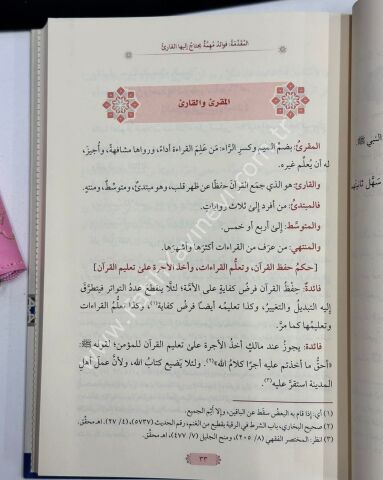 المقدّمة: فوائد مهمّة يحتاج إليها القارئ
المقرئ والقارئ
المقرئ: بضمّ الميم وكسر الرّاء: مَن عَلِمَ القراءة أداءً، ورواها مشافهةً، وأُجيزَ
له أن يُعلّم غيره.
والقارئ: هو الذي جمَع القرآن حفظًا عن ظهر قلب، وهو مبتدئ، ومتوسّط، ومنتهٍ.
فالمبتدئ: من أفرد إلى ثلاث روايات.
والمتوسط: إلى أربع أو خمس.
والمنتهي: من عرَف من القراءات أكثرَها وأشهرَها.
[حكمُ حفظ القرآن، وتعلُّم القراءات، وأخذ الأجرة على تعليم القرآن]
فائدة: حِفْظُ القرآن فرضُ كفايةٍ على الأمّة؛ لئلّا ينقطع عددُ التواتر فيتطرّق
إليه التبديلُ والتغييرُ، وكذا تعليمُه أيضًا فرضُ كفاية(١)، وكذا تعلُّم القراءات
وتعليمُها كما مرّ.
فائدة: يجوز عند مالكٍ أخذُ الأجرة على تعليم القرآن للمؤمن؛ لقوله ﷺ:
«أحقُّ ما أخذتم عليه أجرًا كلامُ الله»(٢). ولئلا يَضيع كتابُ الله، ولأنّ عملَ أهلِ
المدينة استقرّ عليه(٣).
(١) أي: إذا قام به البعض سقَط عن الباقين، وإلّا أثِمَ الجميع.
(٢) صحيح البخاري، باب الشرط في الرقية بقطيع من الغنم، رقم الحديث (٥٧٣٧)، (٤/ ٢٧). اهـ محقّق.
(٣) انظر: المختصر الفقهي (٨/ ٢٠٥)، ومنح الجليل (٧/ ٤٧٧). اهـ محقّق.
٣٣
النبي ﷺ